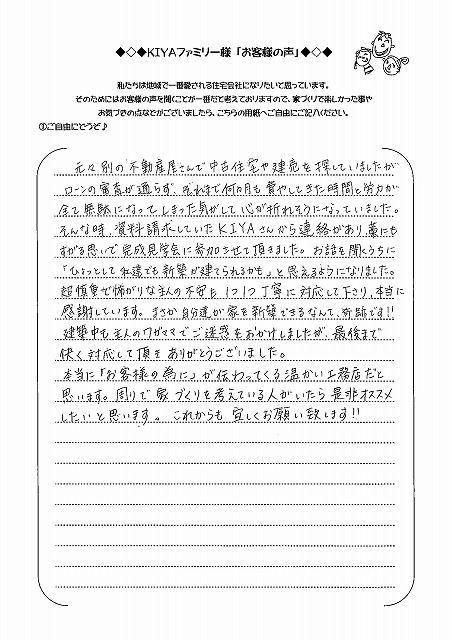 ◆◇◆KIYAファミリー様「お客様の声」◆◇◆
私たちは地域で一番愛される住宅会社になりたいと思っています。
そのためにはお客様の声を聞くことが一番だと考えておりますので、家づくりで楽しかった事や
お気づきの点などがございましたら、こちらの用紙へご自由にご記入ください。
③ご自由にどうぞ♪
元々別の不動産屋さんで中古住宅や建売を探していましたが
ローンの審査が通らず、それまで何ヵ月も費やしてきた時間と労力が
全て無駄になってしまった気がして心が折れそうになっていました。
そんな時、資料請求していたKIYAさんから連絡があり、藁にも
すがる思いで完成見学会に参加させて頂きました。お話を聞くうちに
「ひょっとして私達でも新築が建てられるかも」と思えるようになりました。
超慎重で怖がりな主人の不安も1つ1つ丁寧に対応して下さり、本当に
感謝しています。まさか自分達が家を新築できるなんて、奇跡です!!
建築中も主人のワガママでご迷惑をおかけしましたが、最後まで
快く対応して頂きありがとうございました。
本当に「お客様の為に」が伝わってくる温かい工務店だと
思います。周りで家づくりを考えている人がいたら是非オススメ
したいと思います。これからも宜しくお願い致します!!